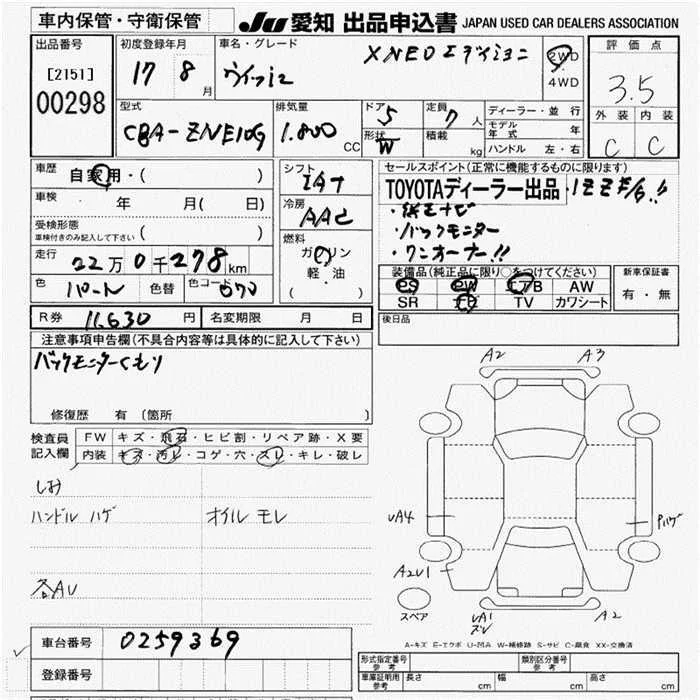 車内保管・守衛保管
JU 愛知 出品申込書 JAPAN USED CAR DEALERS ASSOCIATION
出品番号
[2151]
00298
初度登録年月
17 8 月
車名・グレード
ウィッシュ X NEO エディション
2WD
・
4WD
評価点
3.5
外装 内装
C C
型式
CBA-ZNE10G
排気量
1.800 CC
ドア 5
形状 W
定員 7 人
積載 kg
ディーラー・並行
モデル年式 年
ハンドル 左・右
車歴
自家用・( )
車検
年 月( 日)
受検形態
車検付きのみ記入して下さい ( )
走行
22万0千278km
色 パール 色替 色コード 070
シフト
IAT
冷房
AAC
燃料
ガソリン
軽・油
( )
セールスポイント(正常に機能するものに限ります)
TOYOTAディーラー出品
・純正ナビ
・バックモニター
・ワンオーナー!!
装備品(純正品に限り○をつけてください)
PS PW エアB AW
SR TV カワシート
新車保証書
有・無
R券 11,630 円 名変期限 月 日
後日品
注意事項申告欄(不具合内容等は具体的に記入して下さい)
バックモニターくもり
修復歴 有 (箇所 )
検査員
記入欄
FW キズ・飛石・ヒビ割・リペア跡・X要
内装 キズ・汚レ・コゲ・穴・スレ・キレ・破レ
しお
ハンドル ハゲ オイル モレ
各AU
A2 A3
UA4 Pハゲ
A2U1
スペア
UA1
A2
A-キズ E-エクボ U-凹み W-補修跡 S-サビ C-腐食 XX-交換済
車台番号 0259369
登録番号
形式指定番号 参考
類別区分番号 参考
車庫証明用 参考 長さ cm 幅 cm 高さ cm